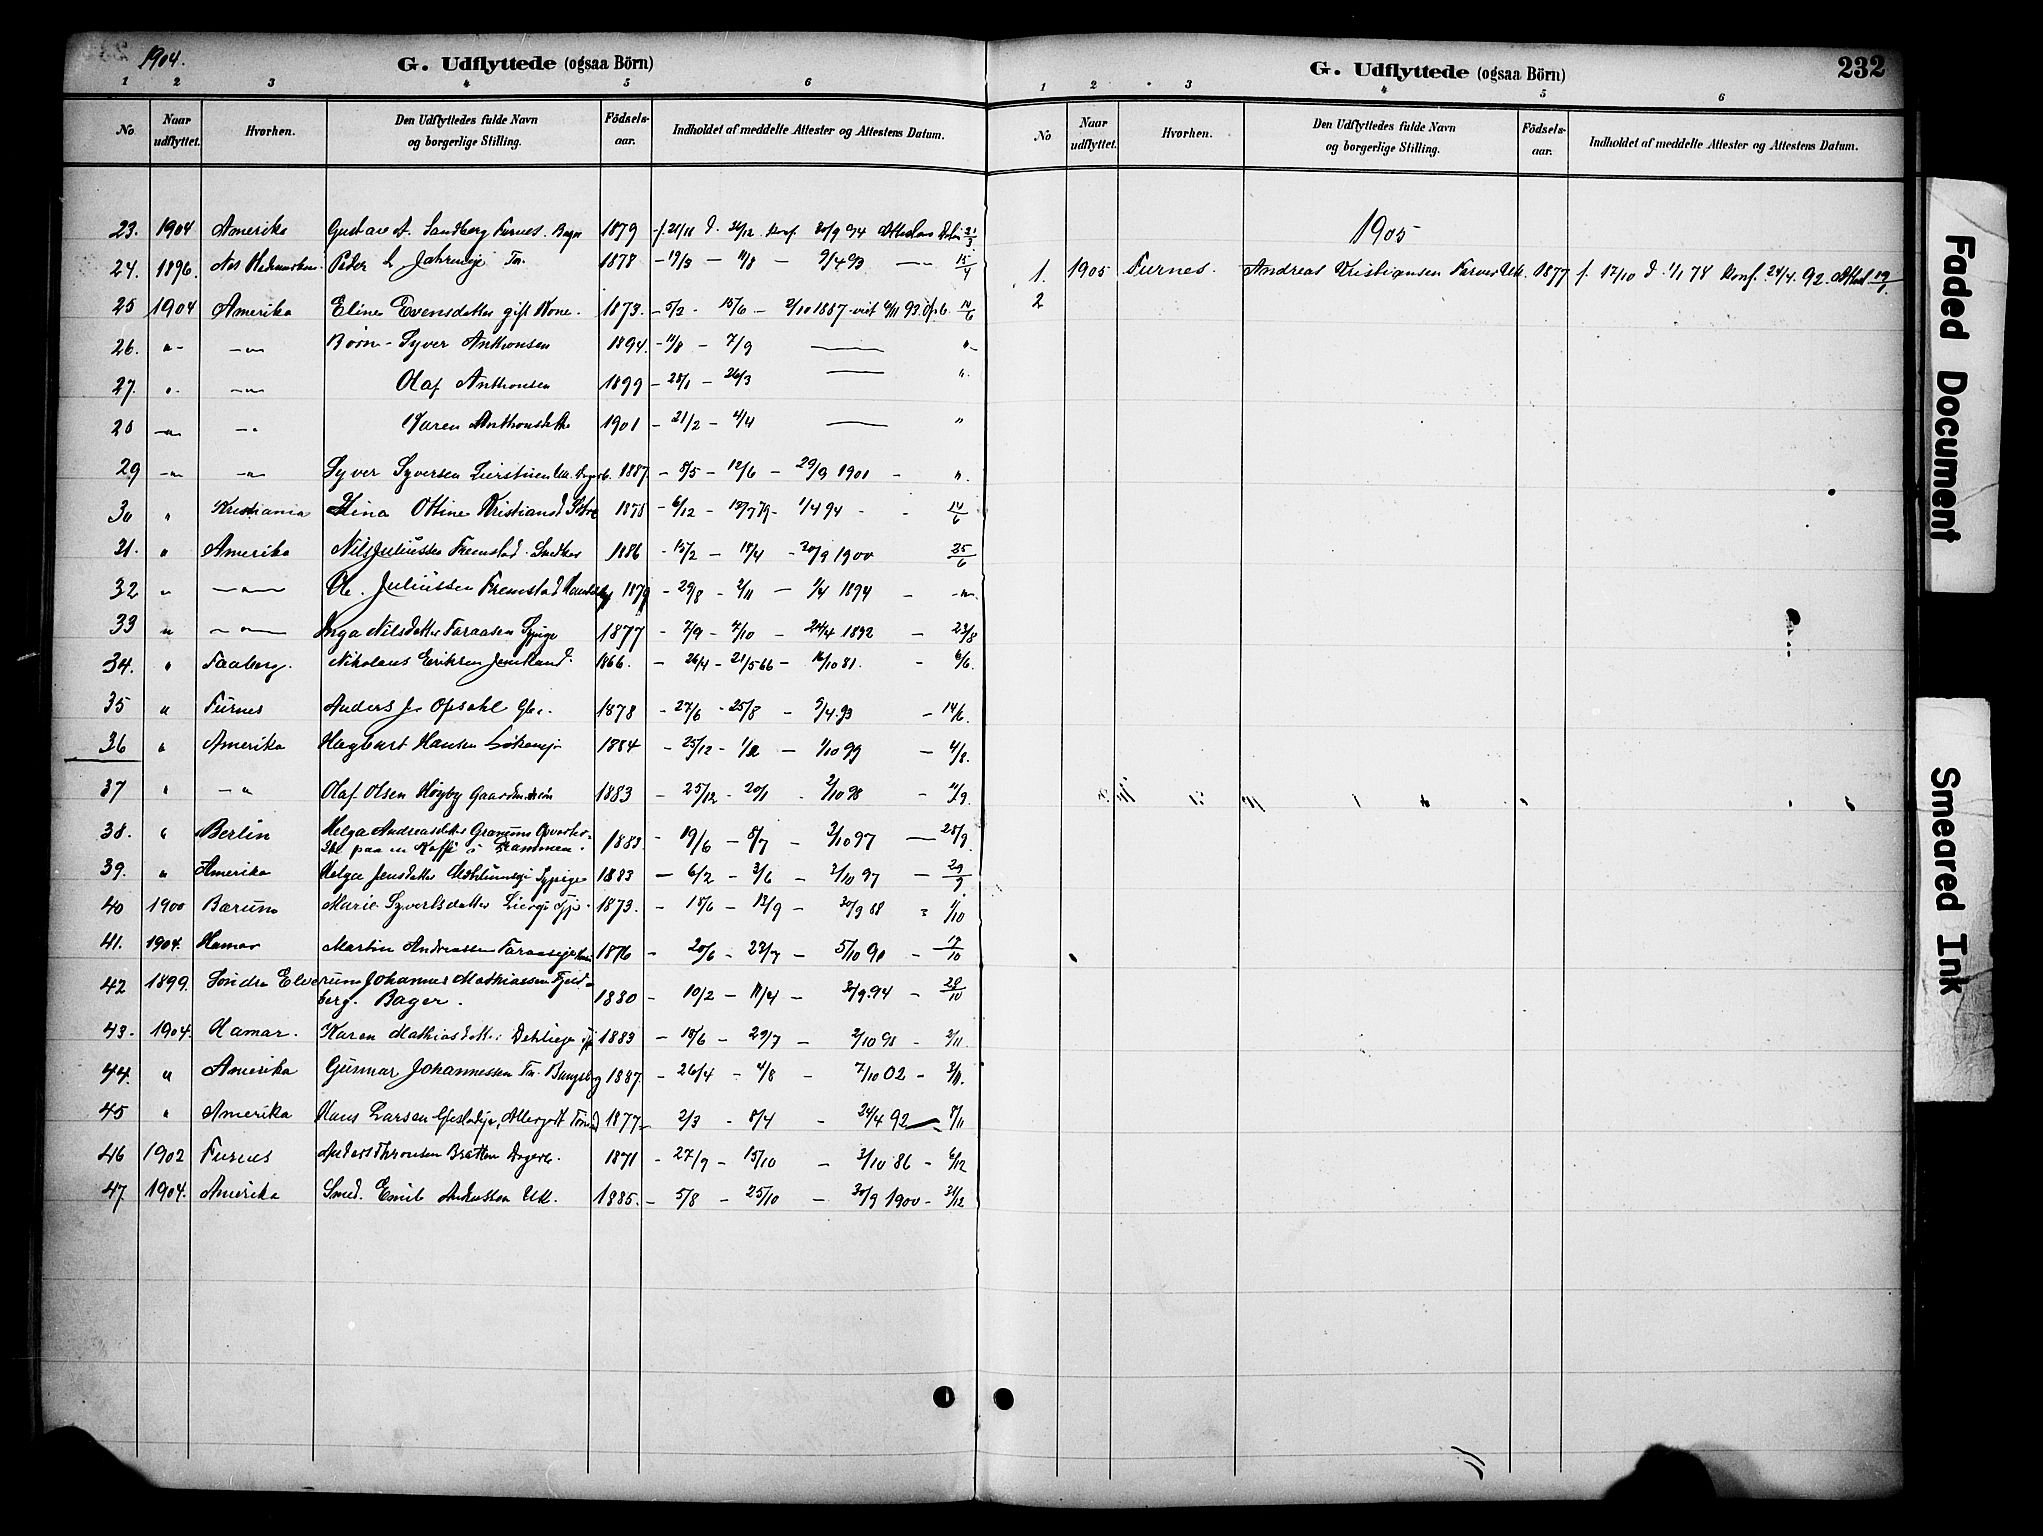 1904.
G. Udflyttede (ogsaa Börn)
1 2 3 4 5 6
No Naar udflyttet. Hvorhen. Den Udflyttedes fulde Navn og borgerlige Stilling. Födsels-aar. Indholdet af meddelte Attester og Attestens Datum.
23. 1904 Amerika Gustav A. Sandberg Furnes. Bager 1879 f 21/11 d. 26/12 Konf 30/9 94 Attestens Datum 21/3
24. 1896. Nes Hedemarken Peder 1878 - 19/3 - 11/8 - 9/4 93 - 15/4
25 1904 Amerika Eline Evensdatter gift Kone. 1873. - 5/2 - 15/6 - 2/10 1887 - viet 6/11 93. 14/6
26. " - - " - Børn - Syver Anthonsen 1894. - 11/8 - 7/9 "
27. " - " - Olaf Anthonsen 1899 - 28/1 - 26/3 "
28 - " - - " Karen Anthonsdatter 1901 - 21/2 - 4/4 "
29 - " - - " - Syver Syversen 1887. - 8/5 - 12/6 - 29/9 1901 - "
30 " Kristiania Lina Ottine Kristiansd. 1878 - 6/12 - 13/7 79 - 1/4 94 - 14/6
31. " Amerika Nils Juliussen Fremstad. Snedker 1886 - 15/2 - 18/4 - 30/9 1900 25/6
32 " - " - Ole Juliussen Fremstad 1879 - 29/8 - 2/11 - 1/4 1894 - " -
33 " - " - Inga Nilsdatter Faraasen Typige 1877 - 7/9 - 7/10 - 24/4 1892 - 23/8
34. " Faaberg. Nikolaus Eriksen 1866. - 26/4 - 21/5 66 - 16/10 81. - 6/6.
35 " Furnes Anders J. Opsahl 1878 - 27/6 - 25/8 - 9/4. 93 - 14/6.
36 " Amerika Hagbart Hansen 1884 - 25/12 - 1/2 - 1/10 99 - 4/8.
37 " - " Olaf Olsen Høyby Gaardm.søn 1883 - 25/12 - 20/1 - 2/10 98 - 11/9.
38. " Berlin Helga Andreasdatter
paa en Kaffe 1883 - 19/6 - 8/7 - 3/10 97 - 28/9.
39. " Amerika Helga Jensdatter Typige 1883 - 6/2 - 3/6 - 3/10 97 - 29/9
40 1900 Bærum Marie Syvertsdatter 1873. - 18/6 - 13/9 - 30/9 88 - 1/10
41. 1904. Hamar Martin Andreassen 1876 - 20/6 - 23/7 - 5/10 90 - 17/10
42 1899. Søndre Elverum Johannes Mathiassen Fjeld-
berg. Bager. 1880 - 10/2 - 11/4 - 30/9. 94 - 28/10
43. 1904. Hamar. Karen Mathiasdatter 1883 - 18/6 - 29/7 - 2/10 98 - 2/11.
44. " Amerika Gunnar Johannessen 1887. - 26/4 - 4/8 - 7/10 02 - 3/11.
45 " Amerika Hans Larsen 1877 - 2/3 - 8/4 - 24/4 92 - 8/11
46 1902 Furnes Anders Thronsen Bratten 1871 - 27/9 - 15/10 - 3/10 86 - 6/12
47. 1904. Amerika Smed. Emil Andreassen 1885. - 5/8 - 25/10 - 30/9 1900 - 31/12
G. Udflyttede (ogsaa Börn)
232
1 2 3 4 5 6
No Naar udflyttet. Hvorhen. Den Udflyttedes fulde Navn og borgerlige Stilling. Födsels-aar. Indholdet af meddelte Attester og Attestens Datum.
1905
1. 1905 Furnes. Andreas Kristiansen 1877 f. 17/10 d. 1/1 78 Konf. 24/4. 92. Attest 19/1.
2
Faded Document
Smeared Ink